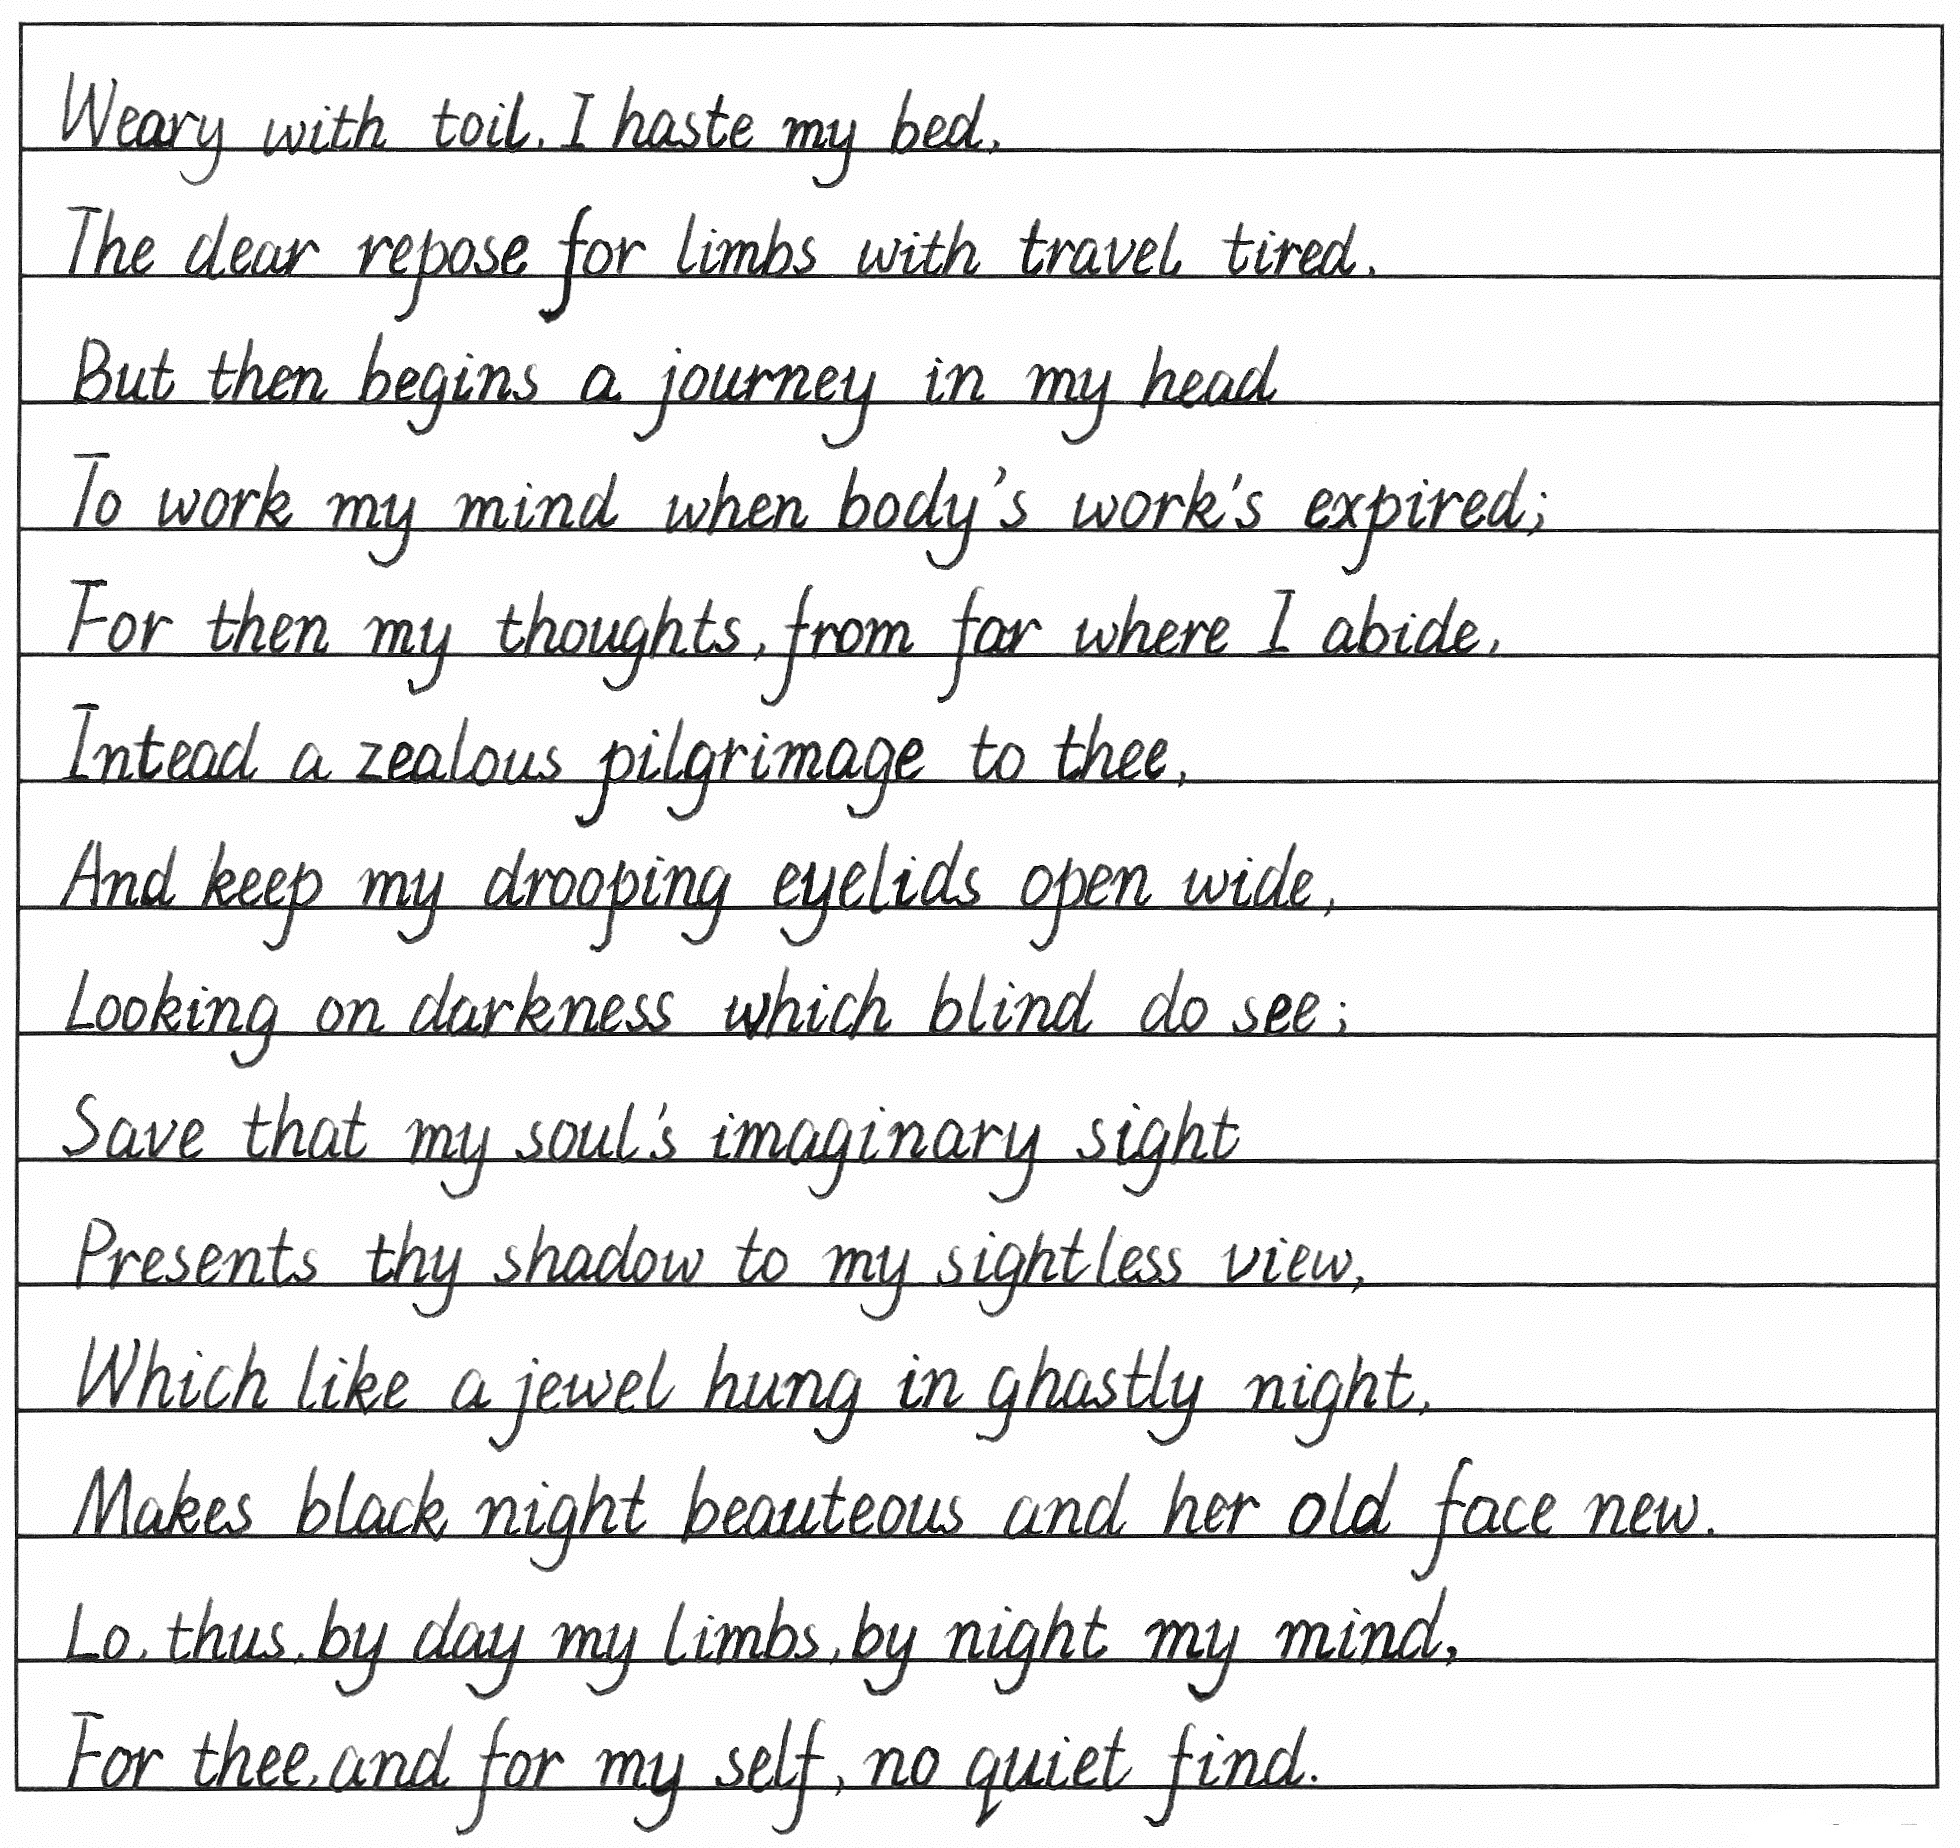 Weary with toil, I haste my bed,
The dear repose for limbs with travel tired.
But then begins a journey in my head
To work my mind when body's work's expired;
For then my thoughts, from far where I abide,
Intead a zealous pilgrimage to thee,
And keep my drooping eyelids open wide,
Looking on darkness which blind do see;
Save that my soul's imaginary sight
Presents thy shadow to my sightless view,
Which like a jewel hung in ghastly night,
Makes black night beauteous and her old face new.
Lo, thus, by day my limbs, by night my mind,
For thee, and for my self, no quiet find.